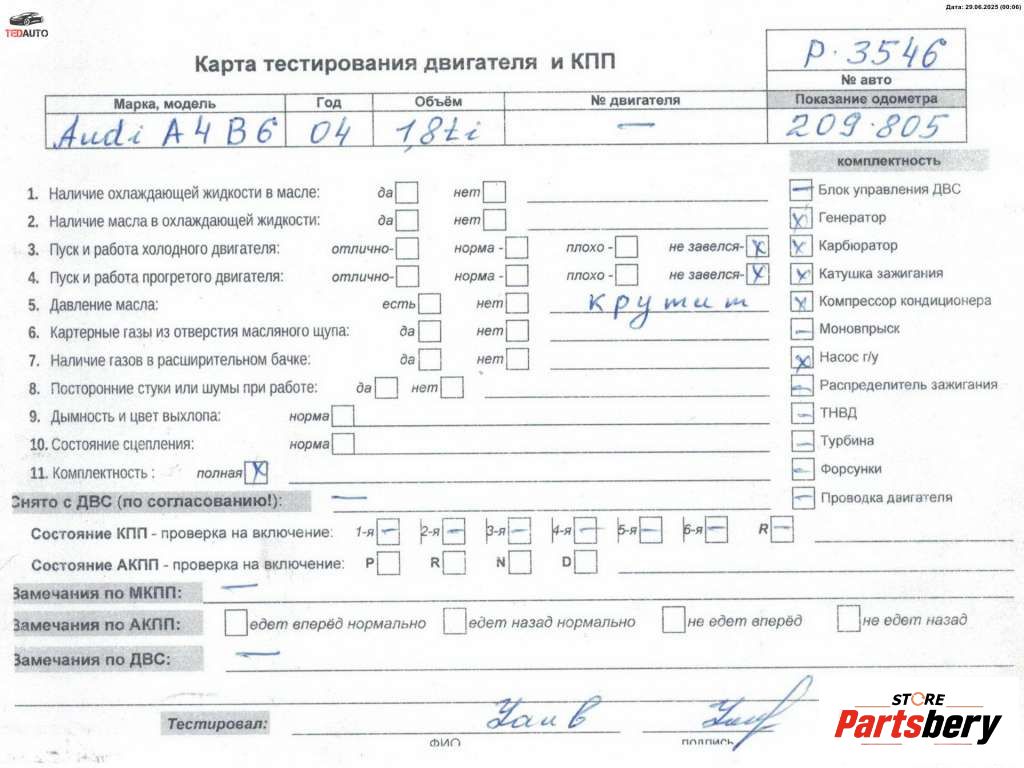 Дата: 29.06.2025 (00:06)
TEDAUTO
P. 3546
Карта тестирования двигателя и КПП
№ авто
Марка, модель Год Объём № двигателя Показание одометра
Audi A4 B6 04 1,8ti — 209.805
комплектность
1. Наличие охлаждающей жидкости в масле: да нет
Блок управления ДВС
2. Наличие масла в охлаждающей жидкости: да нет
Генератор
3. Пуск и работа холодного двигателя: отлично- норма - плохо - не завелся- x
Карбюратор
4. Пуск и работа прогретого двигателя: отлично- норма - плохо - не завелся- x
Катушка зажигания
5. Давление масла: есть нет крутит
Компрессор кондиционера
6. Картерные газы из отверстия масляного щупа: да нет
Моновпрыск
7. Наличие газов в расширительном бачке: да нет
Насос г/у
8. Посторонние стуки или шумы при работе: да нет
Распределитель зажигания
9. Дымность и цвет выхлопа: норма
ТНВД
10. Состояние сцепления: норма
Турбина
11. Комплектность : полная x
Форсунки
Снято с ДВС (по согласованию!): —
Проводка двигателя
Состояние КПП - проверка на включение: 1-я – 2-я – 3-я – 4-я – 5-я – 6-я – R –
Состояние АКПП - проверка на включение: P R N D
Замечания по МКПП: —
Замечания по АКПП: едет вперёд нормально едет назад нормально не едет вперёд не едет назад
Замечания по ДВС: —
Тестировал:
ФИО подпись
STORE
Partsbery